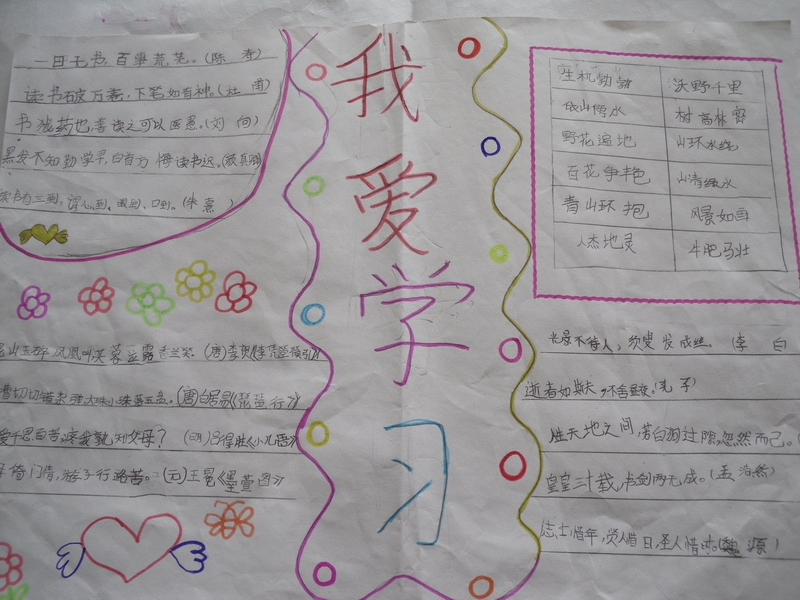 一日无书,百事荒芜。(陈寿)
读书破万卷,下笔如有神。(杜甫)
书犹药也,善读之可以医愚。(刘向)
黑发不知勤学早,白首方悔读书迟。(颜真卿)
读书有三到,谓心到,眼到,口到。(朱熹)
我爱学习
生机勃勃 沃野千里
依山傍水 树高林密
野花遍地 山环水绕
百花争艳 山清绿水
青山环抱 风景如画
人杰地灵 牛肥马壮
昆山玉碎凤凰叫芙蓉泣露香兰笑。(唐)李贺《李凭箜篌引》
嘈切切错杂弹大珠小珠落玉盘。(唐)白居易《琵琶行》
爱千思百苦,疼我孰如父母?(明)吕得胜《小儿语》
母倚门情,游子行路苦。(元)王冕《墨萱图》
光景不待人,须臾发成丝。(李白)
逝者如斯夫,不舍昼夜。(孔子)
生天地之间,若白驹过隙,忽然而已。
皇皇三十载,书剑两无成。(孟浩然)
志士惜年,贤人惜日,圣人惜时。(魏源)